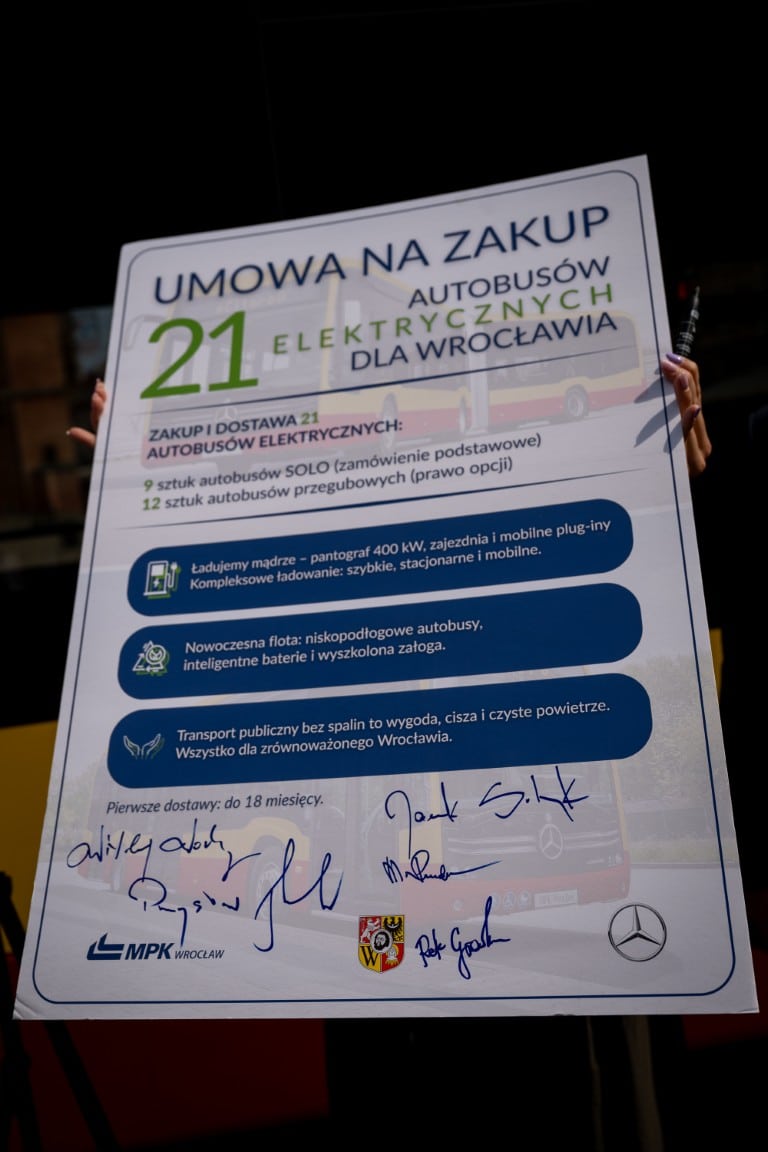 UMOWA NA ZAKUP
21 AUTOBUSÓW
ELEKTRYCZNYCH
DLA WROCŁAWIA
ZAKUP I DOSTAWA 21
AUTOBUSÓW ELEKTRYCZNYCH:
9 sztuk autobusów SOLO (zamówienie podstawowe)
12 sztuk autobusów przegubowych (prawo opcji)
Ładujemy mądrze – pantograf 400 kW, zajezdnia i mobilne plug-iny
Kompleksowe ładowanie: szybkie, stacjonarne i mobilne.
Nowoczesna flota: niskopodłogowe autobusy,
inteligentne baterie i wyszkolona załoga.
Transport publiczny bez spalin to wygoda, cisza i czyste powietrze.
Wszystko dla zrównoważonego Wrocławia.
Pierwsze dostawy: do 18 miesięcy.
MPK WROCŁAW
W